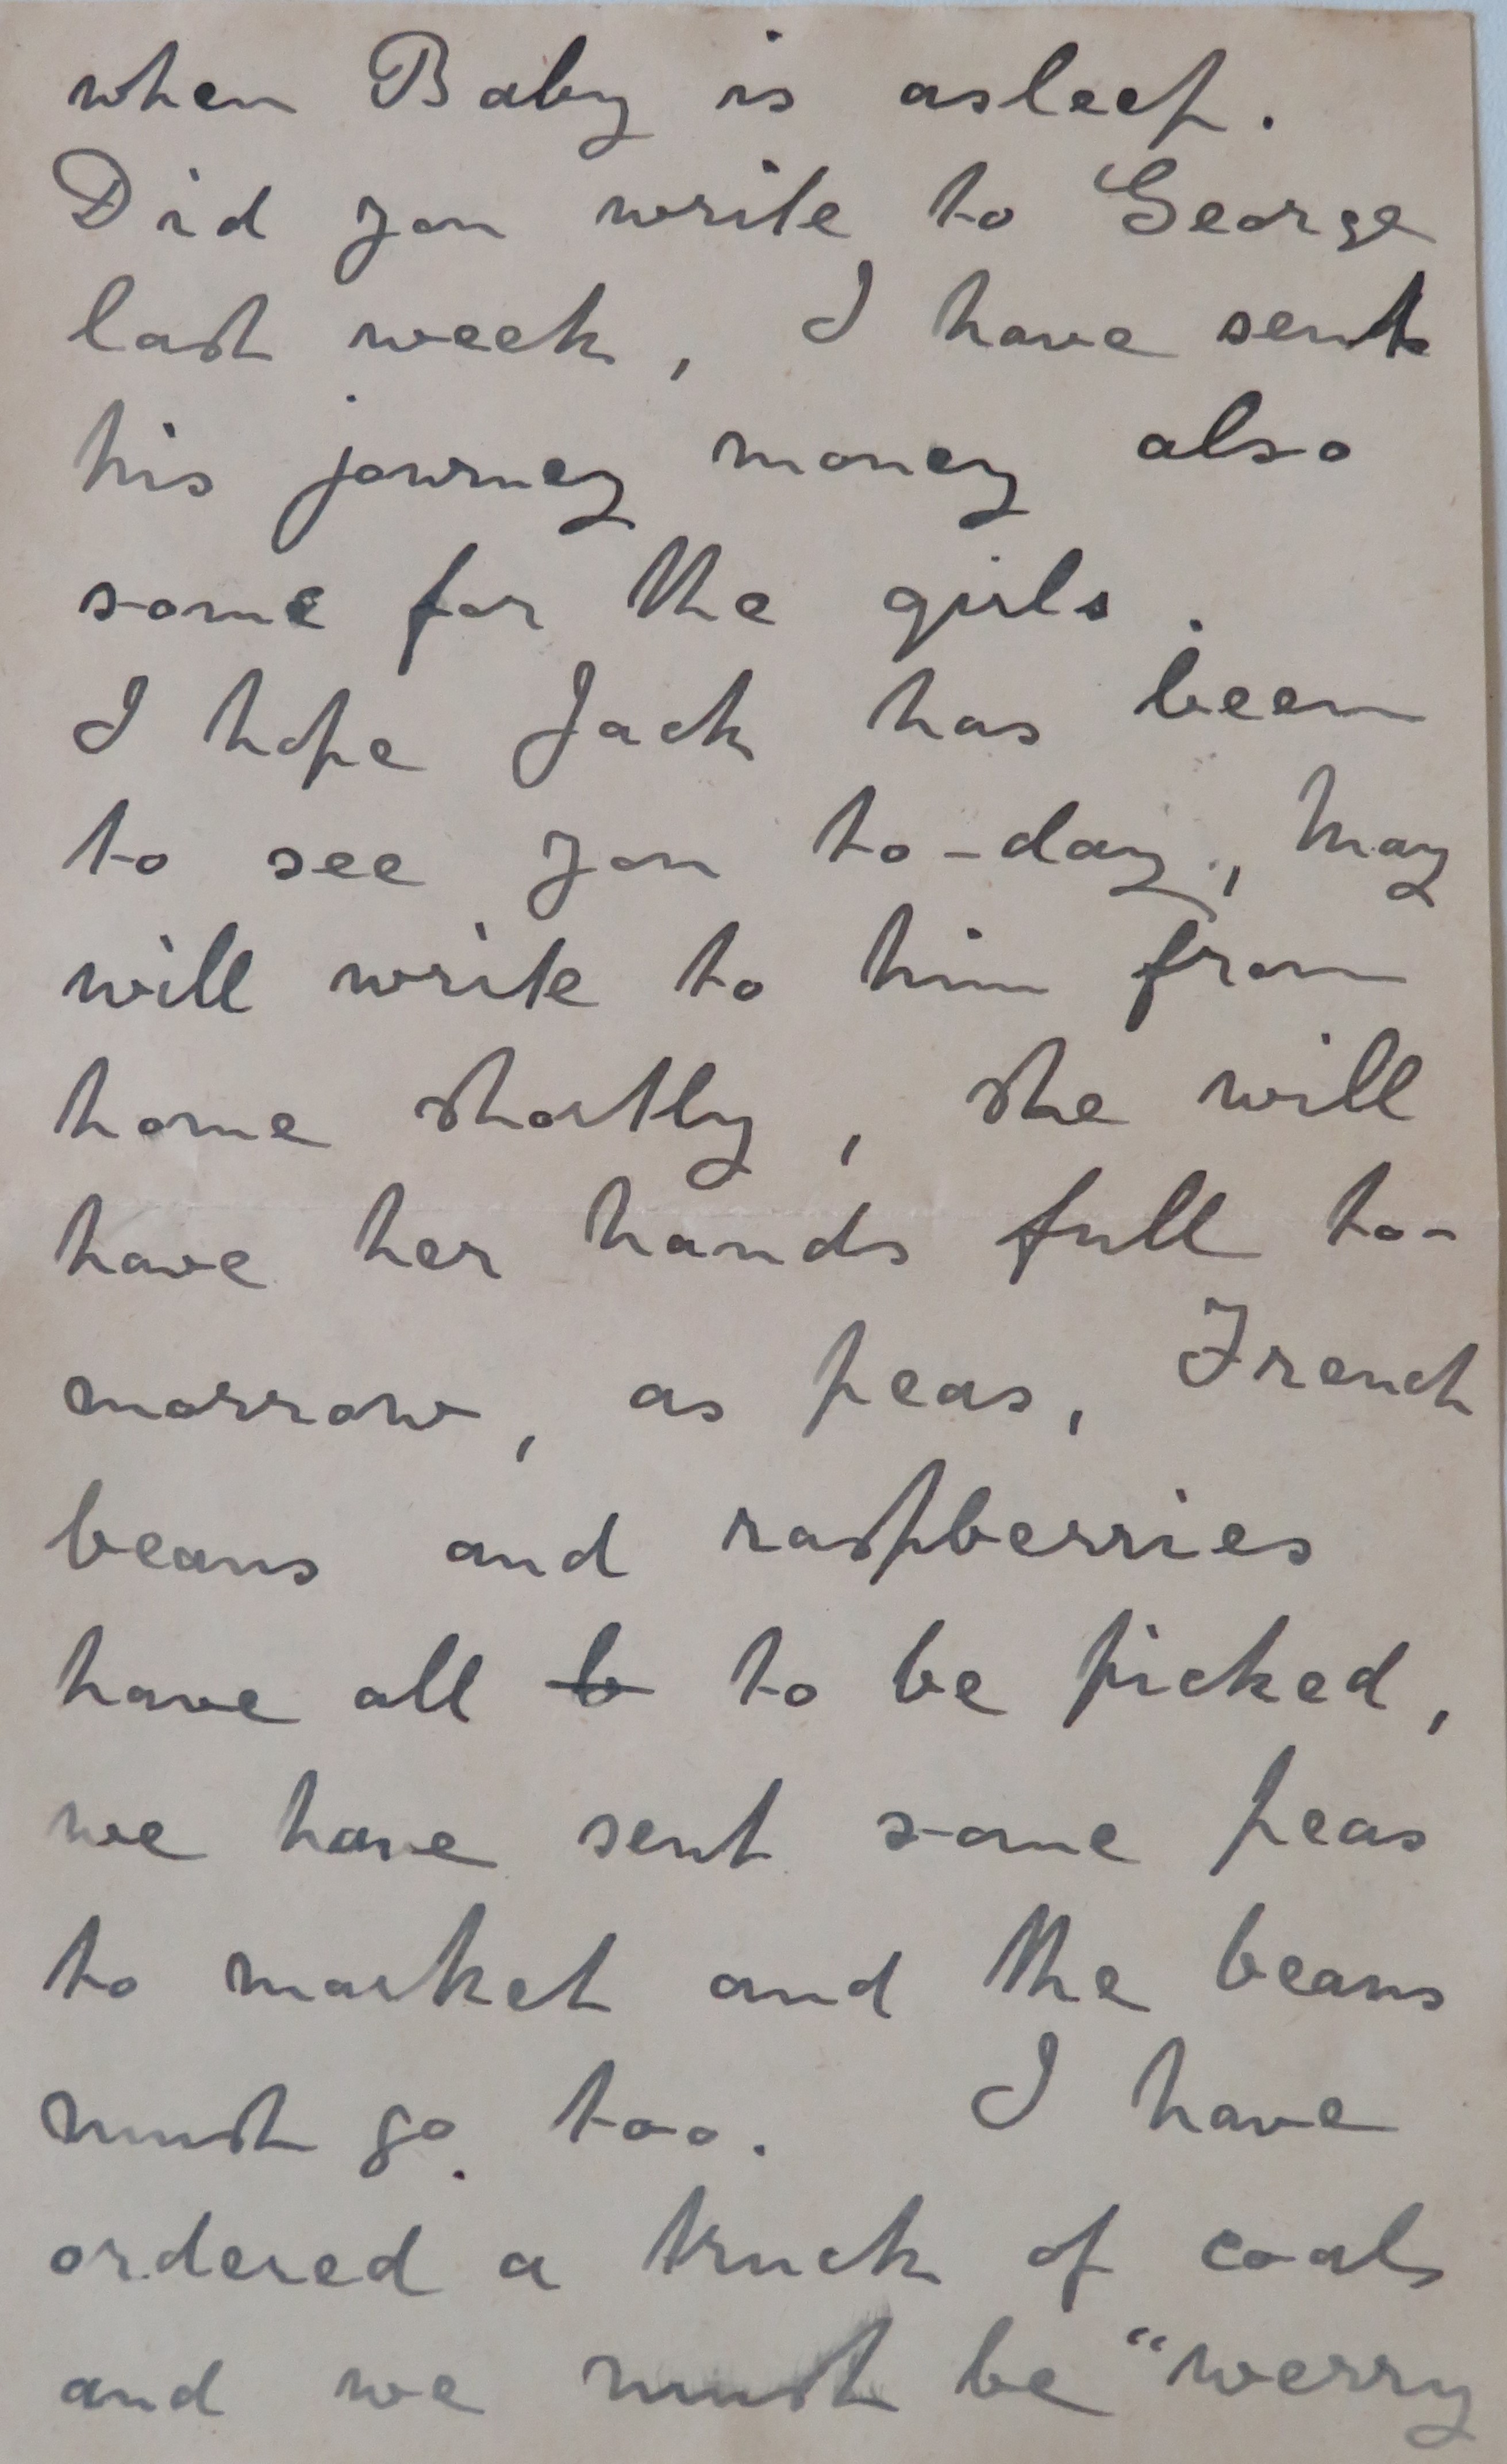 when Baby is asleep.
Did you write to George
last week, I have sent
his journey money also
some for the girls.
I hope Jack has been
to see you to-day, May
will write to him from
home shortly, she will
have her hands full to-
morrow, as peas, French
beans and raspberries
have all b to be picked,
we have sent some peas
to market and the beans
must go too. I have
ordered a truck of coals
and we must be "werry